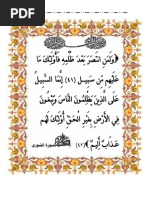 ﴿وَلَمَنِ انتَصَرَ بَعْدَ ظُلْمِهِ فَأُوْلَئِكَ مَا
عَلَيْهِم مِّن سَبِيلٍ (٤١) إِنَّمَا السَّبِيلُ
عَلَى الَّذِينَ يَظْلِمُونَ النَّاسَ وَيَبْغُونَ
فِي الْأَرْضِ بِغَيْرِ الْحَقِّ أُوْلَئِكَ لَهُم
عَذَابٌ أَلِيمٌ﴾ (٤٢) سورة الشورى